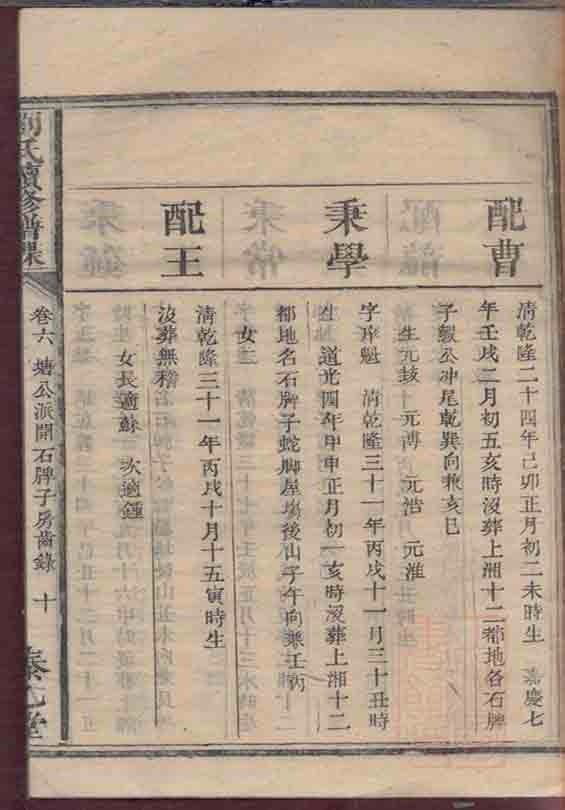 配曹
清乾隆二十四年己卯正月初二未時生 嘉慶七
年壬戌二月初五亥時沒葬上湘十二都地名石牌
子蝦公冲尾乾巽向兼亥巳
生元鼓 元溥 元浩 元淮
秉學
字序魁 清乾隆三十一年丙戌十一月三十丑時
生 道光四年甲申正月初一亥時沒葬上湘十二
都地名石牌子蛇脚屋塲後山子午向兼壬丙
女二
配王
清乾隆三十一年丙戌十月十五寅時生
沒葬無稽
女長適蘇 次適鍾
劉氏續修譜
卷六 塘公派開石牌子房齒錄 十
堂